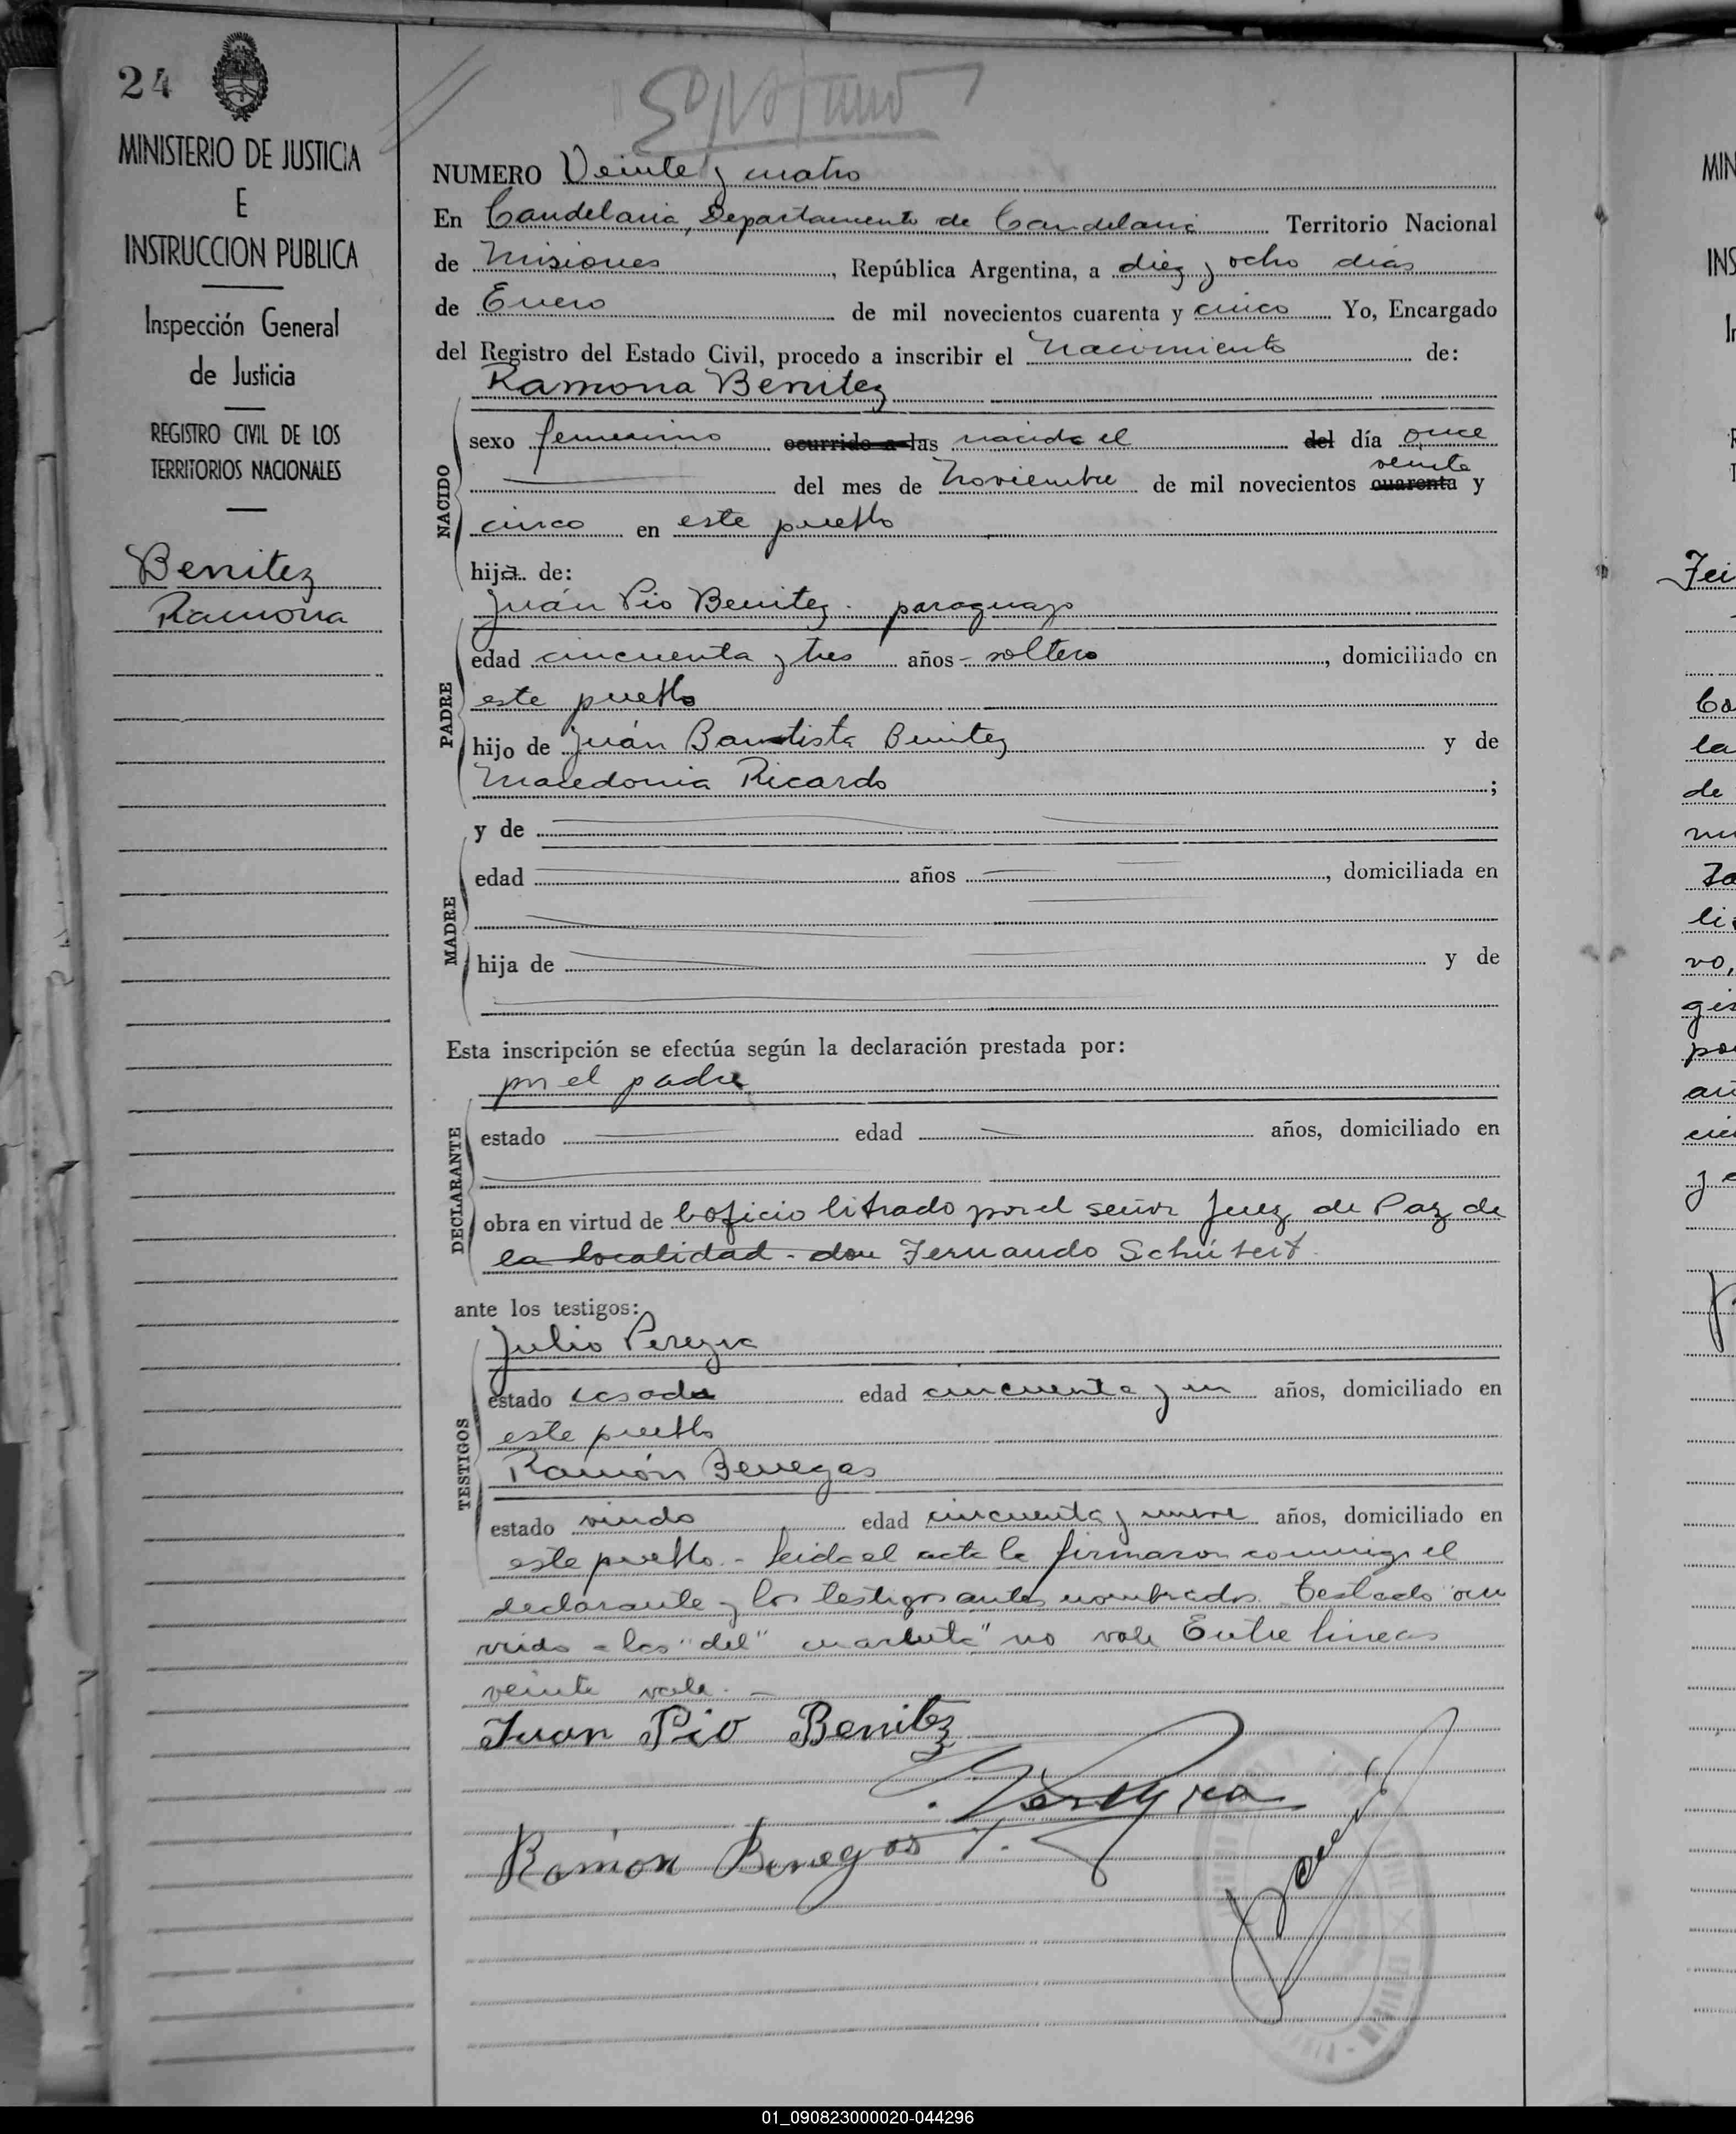 24
MINISTERIO DE JUSTICIA
E
INSTRUCCION PUBLICA
Inspección General
de Justicia
REGISTRO CIVIL DE LOS
TERRITORIOS NACIONALES
Benitez
Ramona
NUMERO Veinte y cuatro
En Candelaria, Departamento de Candelaria Territorio Nacional
de Misiones, República Argentina, a diez y ocho dias
de Enero de mil novecientos cuarenta y cinco Yo, Encargado
del Registro del Estado Civil, procedo a inscribir el Nacimiento de:
Ramona Benitez
NACIDO
sexo femenino ocurrido a las nacida el del día once
veinte
del mes de Noviembre de mil novecientos cuarenta y
cinco en este pueblo
hija de:
Juán Pio Benitez. paraguayo
PADRE
edad cincuenta y tres años - soltero, domiciliado en
este pueblo
hijo de Juán Bautista Benitez y de
Macedonia Ricardo;
MADRE
y de
edad años, domiciliada en
hija de y de
Esta inscripción se efectúa según la declaración prestada por:
por el padre
DECLARANTE
estado edad años, domiciliado en
obra en virtud de oficio librado por el señor Juez de Paz de
la localidad - don Fernando Schübert
ante los testigos:
TESTIGOS
Julio Pereyra
estado casado edad cincuenta y un años, domiciliado en
este pueblo
Ramón Benegas
estado viudo edad cincuenta y nueve años, domiciliado en
este pueblo - leida el acta la firmaron conmigo el
declarante y los testigos antes nombrados. Testado "ocu
rrido a las" "del" "cuarenta" no vale Entre lineas
veinte vale. -
Juan Pio Benitez
Pereyra
Ramon Benegas
MIN
INS
Fei
la
de
li
vo,
01_090823000020-044296